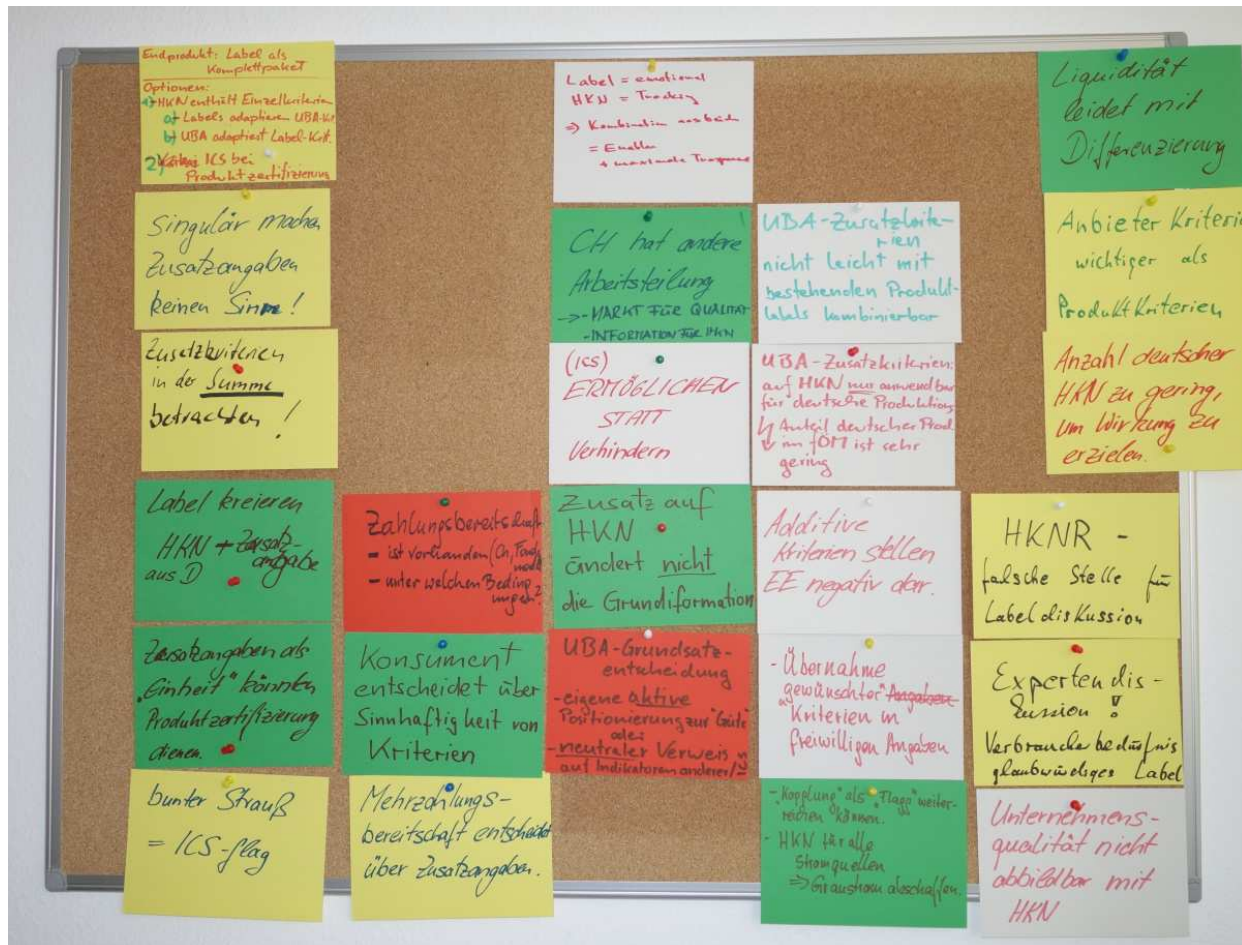 Endprodukt: Label als
Komplettpaket
Optionen:
1) HKN enthält Einzelkriterien
a) Labels adaptieren UBA-Kr
b) UBA adaptiert Label-Krit.
2) ICS bei
Produktzertifizierung
Singulär machen
Zusatzangaben
keinen Sinn!
Zusatzkriterien
in der Summe
betrachten!
Label kreieren
HKN + Zusatz-
angabe
aus D
Zusatzangaben als
„Einheit" könnten
Produktzertifizierung
dienen.
bunter Strauß
= ICS-flag
Zahlungsbereitschaft
- ist vorhanden (CH,
- unter welchen Beding
ungen?
Konsument
entscheidet über
Sinnhaftigkeit von
Kriterien
Mehrzahlungs-
bereitschaft entscheidet
über Zusatzangaben.
Label = emotional
HKN = Tracking
=> Kombination
= Enabler
+ maximale
CH hat andere
Arbeitsteilung
-> - MARKT FÜR QUALITÄT
- INFORMATION FÜR HKN
(ICS)
ERMÖGLICHEN
STATT
Verhindern
Zusatz auf
HKN
ändert nicht
die Grundiformation
UBA-Grundsatz-
entscheidung
- eigene aktive
Positionierung zur "Güte
oder
- neutraler Verweis
auf Indikatoren anderer
UBA-Zusatzkrite-
rien
nicht leicht mit
bestehenden Produkt-
labels kombinierbar
UBA-Zusatzkriterien:
auf HKN nur anwendbar
für deutsche Produktion
Anteil deutscher Prod.
im fÖM ist sehr
gering
Additive
Kriterien stellen
EE negativ dar.
- Übernahme
„gewünschter" Angaben
Kriterien in
freiwilligen Angaben
- „Kopplung" als „Flagg" weiter-
reichen können.
- HKN für alle
Stromquellen
=> Graustrom abschaffen.
Liquidität
leidet mit
Differenzierung
Anbieter Kriterie
wichtiger als
Produktkriterien
Anzahl deutscher
HKN zu gering,
um Wirkung zu
erzielen.
HKNR -
falsche Stelle für
Labeldiskussion
Expertendis-
kussion!
Verbraucherbedürfnis
glaubwürdiges Label
Unternehmens-
qualität nicht
abbildbar mit
HKN